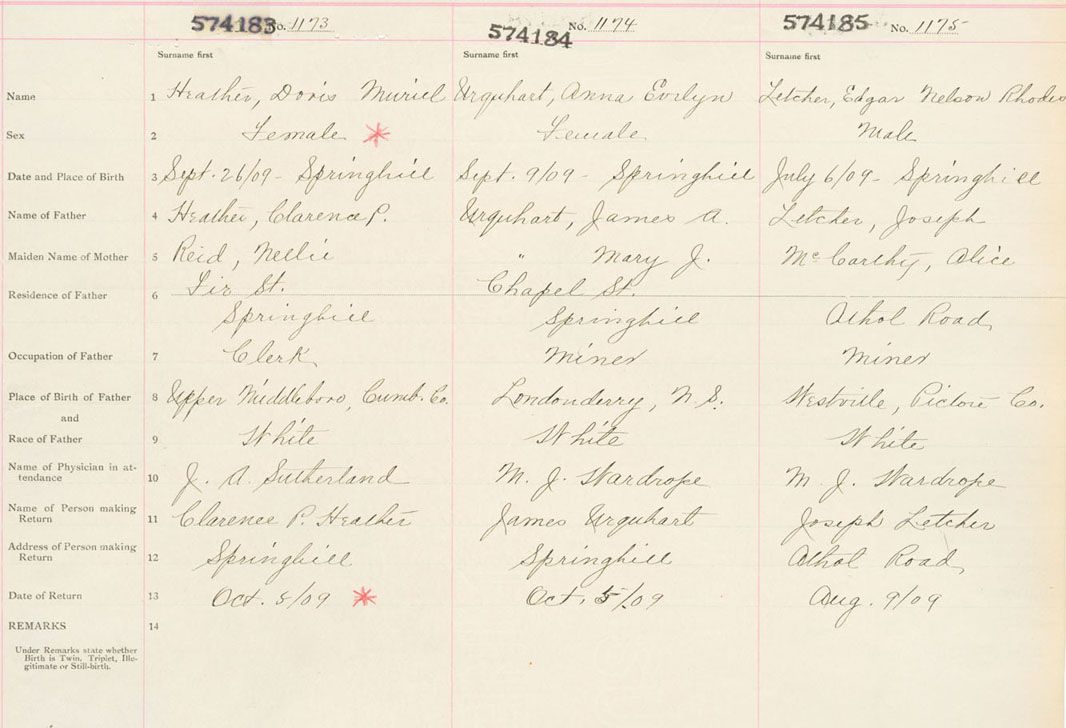 574183 No. 1173 574184 No. 1174 574185 No. 1175
Surname first Surname first Surname first
Name 1 Heather, Doris Muriel Urquhart, Anna Evelyn Letcher, Edgar Nelson Rhodes
Sex 2 Female * Female Male
Date and Place of Birth 3 Sept. 26/09 - Springhill Sept. 9/09 - Springhill July 6/09 - Springhill
Name of Father 4 Heather, Clarence P. Urquhart, James A. Letcher, Joseph
Maiden Name of Mother 5 Reid, Nellie " Mary J. McCarthy, Alice
Residence of Father 6 Fir St. Chapel St.
Springhill Springhill Athol Road
Occupation of Father 7 Clerk Miner Miner
Place of Birth of Father 8 Upper Middleboro, Cumb. Co. Londonderry, N.S. Westville, Pictou Co.
and
Race of Father 9 White White White
Name of Physician in at-
tendance 10 J. A. Sutherland M. J. Wardrope M. J. Wardrope
Name of Person making
Return 11 Clarence P. Heather James Urquhart Joseph Letcher
Address of Person making
Return 12 Springhill Springhill Athol Road
Date of Return 13 Oct. 5/09 * Oct. 5/09 Aug. 9/09
REMARKS 14
Under Remarks state whether
Birth is Twin, Triplet, Ille-
gitimate or Still-birth.